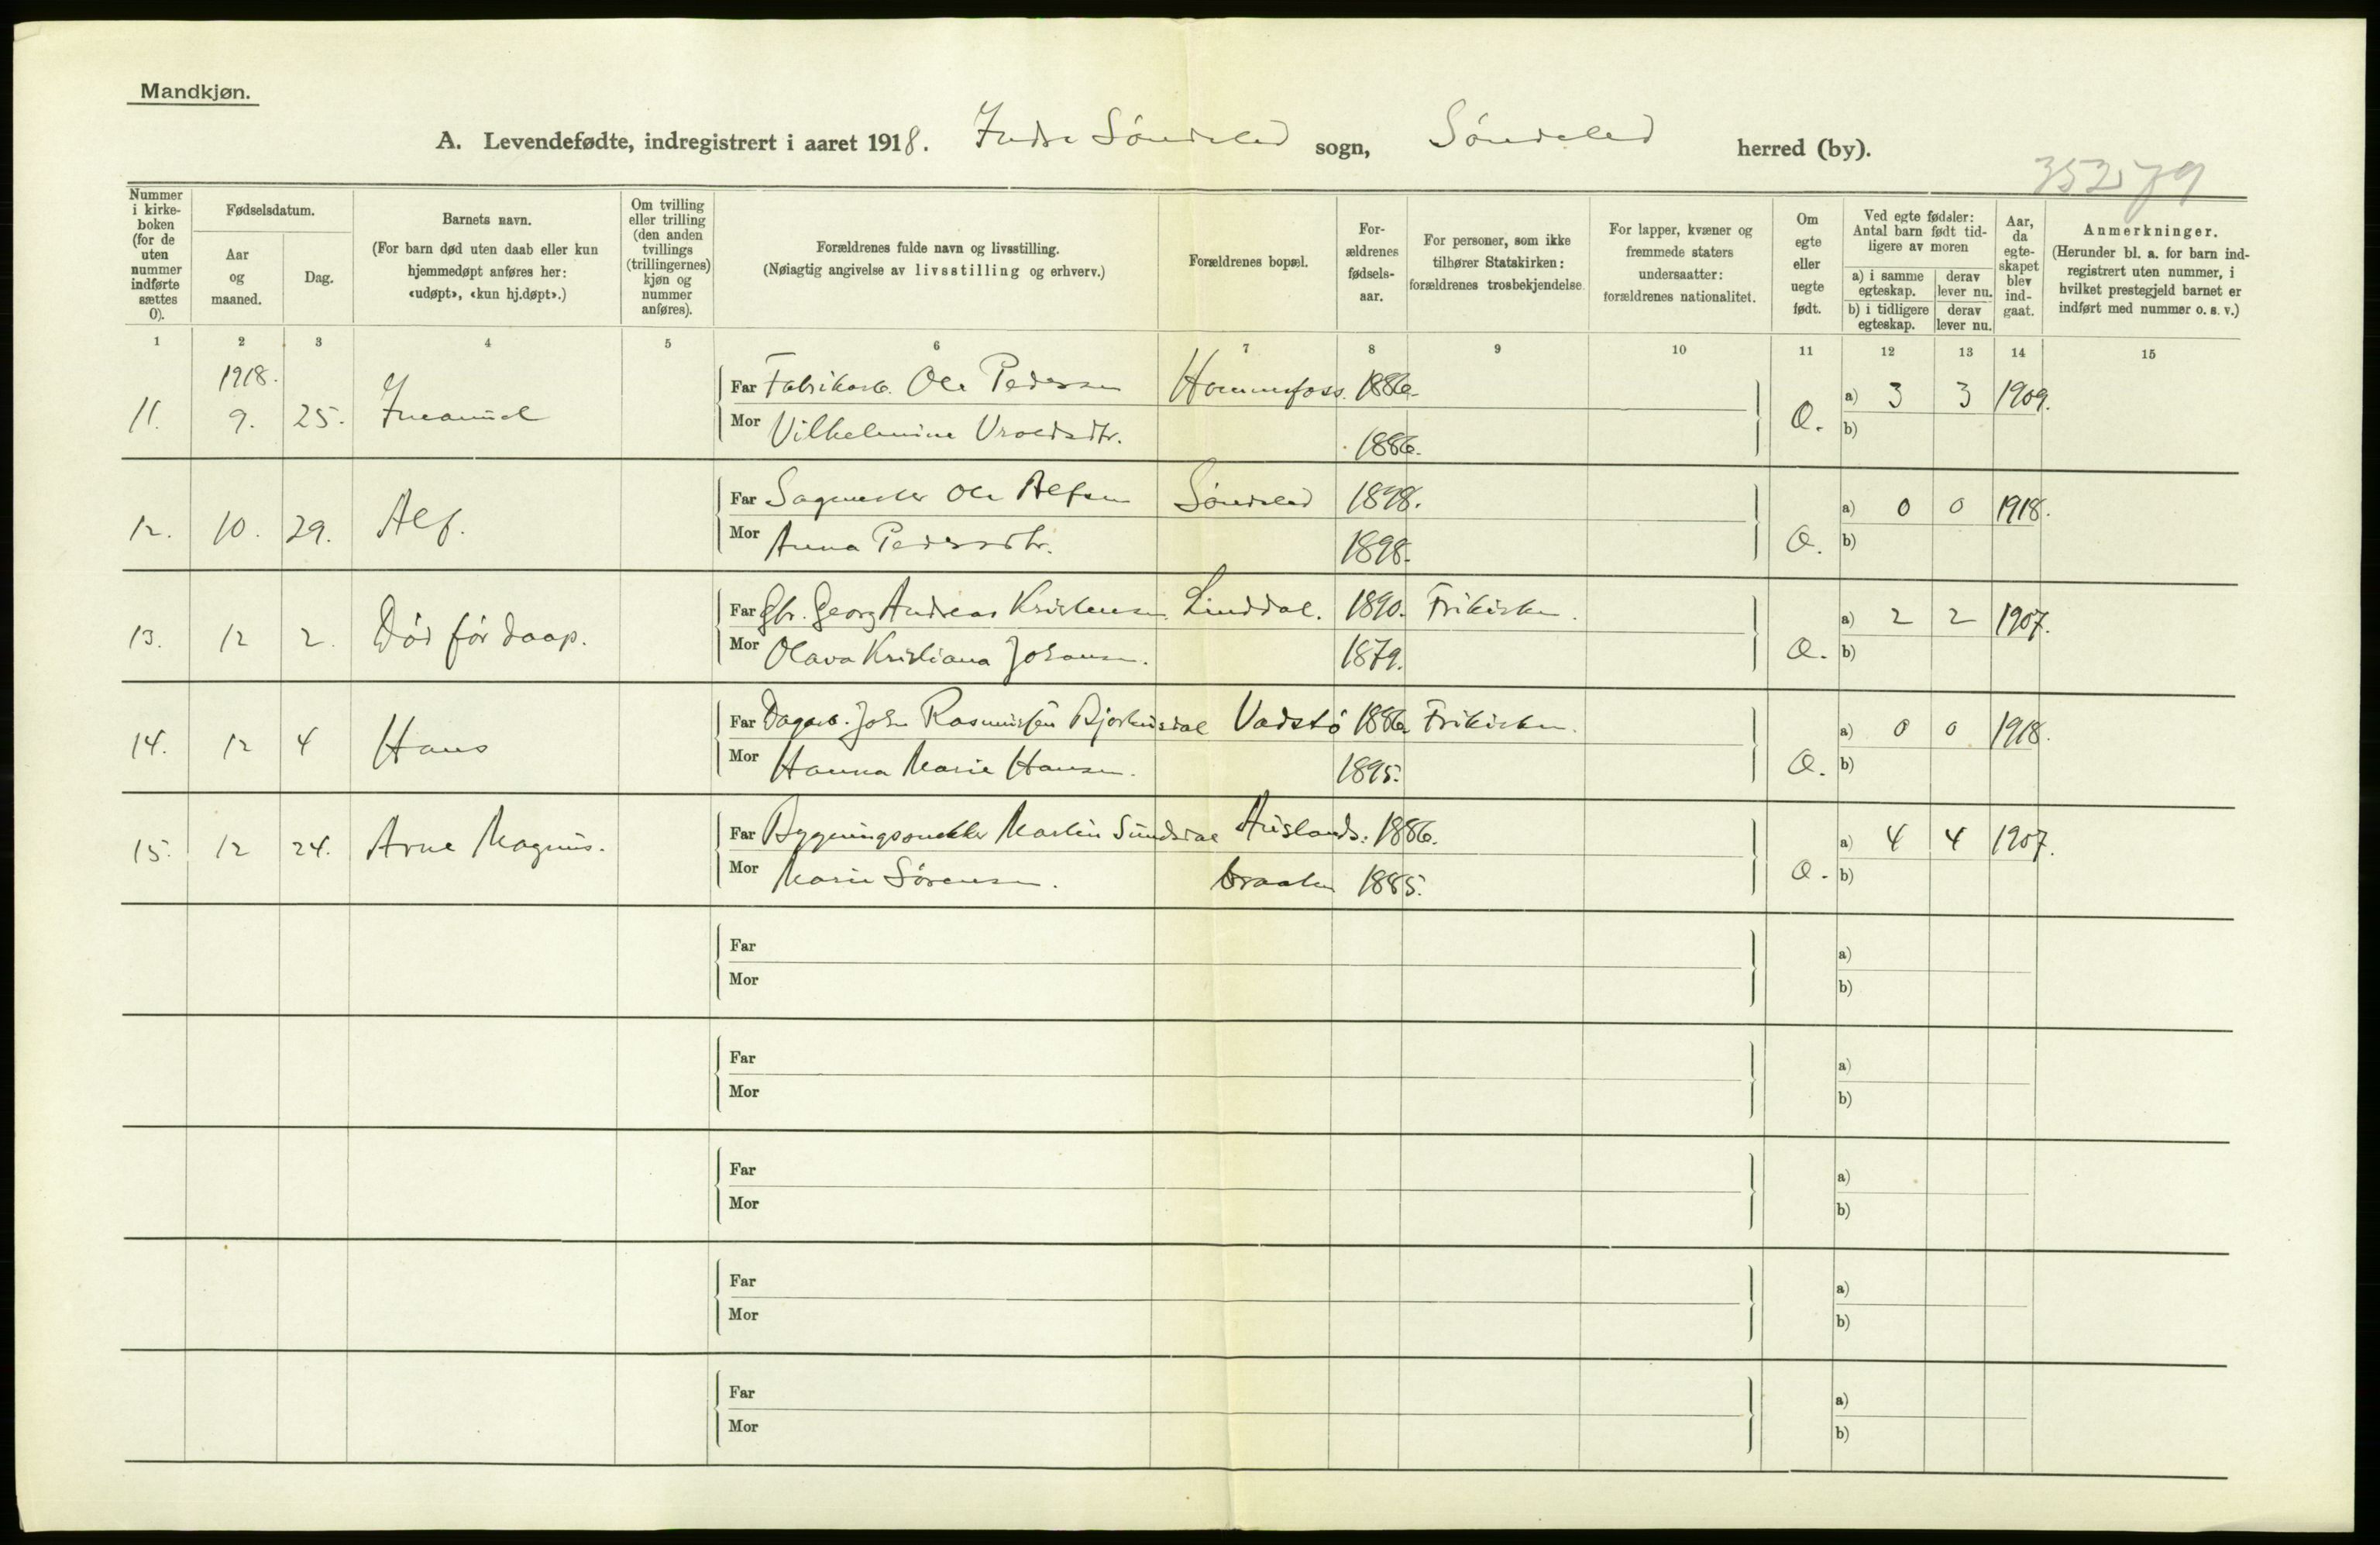 Mandkjøn.
A. Levendefødte, indregistrert i aaret 1918. Indre Søndeled sogn, Søndeled herred (by).
35279
Nummer i kirke-boken (for de uten nummer indførte sættes 0).
Fødselsdatum.
Aar og maaned.
Dag.
Barnets navn.
(For barn død uten daab eller kun hjemmedøpt anføres her: «udøpt», «kun hj.døpt».)
Om tvilling eller trilling (den anden tvillings (trillingernes) kjøn og nummer anføres).
Forældrenes fulde navn og livsstilling.
(Nøiagtig angivelse av livsstilling og erhverv.)
Forældrenes bopæl.
For-ældrenes fødsels-aar.
For personer, som ikke tilhører Statskirken: forældrenes trosbekjendelse.
For lapper, kvæner og fremmede staters undersaatter: forældrenes nationalitet.
Om egte eller uegte født.
Ved egte fødsler: Antal barn født tid-ligere av moren
a) i samme egteskap. derav lever nu.
b) i tidligere egteskap. derav lever nu.
Aar, da egte-skapet blev ind-gaat.
Anmerkninger.
(Herunder bl. a. for barn ind-registrert uten nummer, i hvilket prestegjeld barnet er indført med nummer o. s. v.)
1 2 3 4 5 6 7 8 9 10 11 12 13 14 15
1918.
11. 9. 25. Far Fabrikarb. Ole Pedersen Hommefoss. 1886. a) 3 3 1909.
Mor Vilhelmine Vroldsdtr. 1886. b)
12. 10. 29. Alf. Far Sagmester Ole Alfsen Søndeled 1898. a) 0 0 1918.
Mor Anna Pedersdtr. 1898. b)
13. 12 2. Død før daap. Far Gbr. Georg Andreas Kristensen. Linddal. 1890. Frikirken. a) 2 2 1907.
Mor Olava Kristiana Johansen. 1879. b)
14. 12 4 Hans Far Dagarb. John Rasmussen Bjorkusdal Vadstø 1886 Frikirken. a) 0 0 1918.
Mor Hanna Marie Hansen. 1895. b)
15. 12 24. Arne Magnus. Far Bygningssnekker Martin Sundsdal Auslands. 1886. a) 4 4 1907.
Mor Marie Sørensen. braaten 1885. b)
Far a)
Mor b)
Far a)
Mor b)
Far a)
Mor b)
Far a)
Mor b)
Far a)
Mor b)